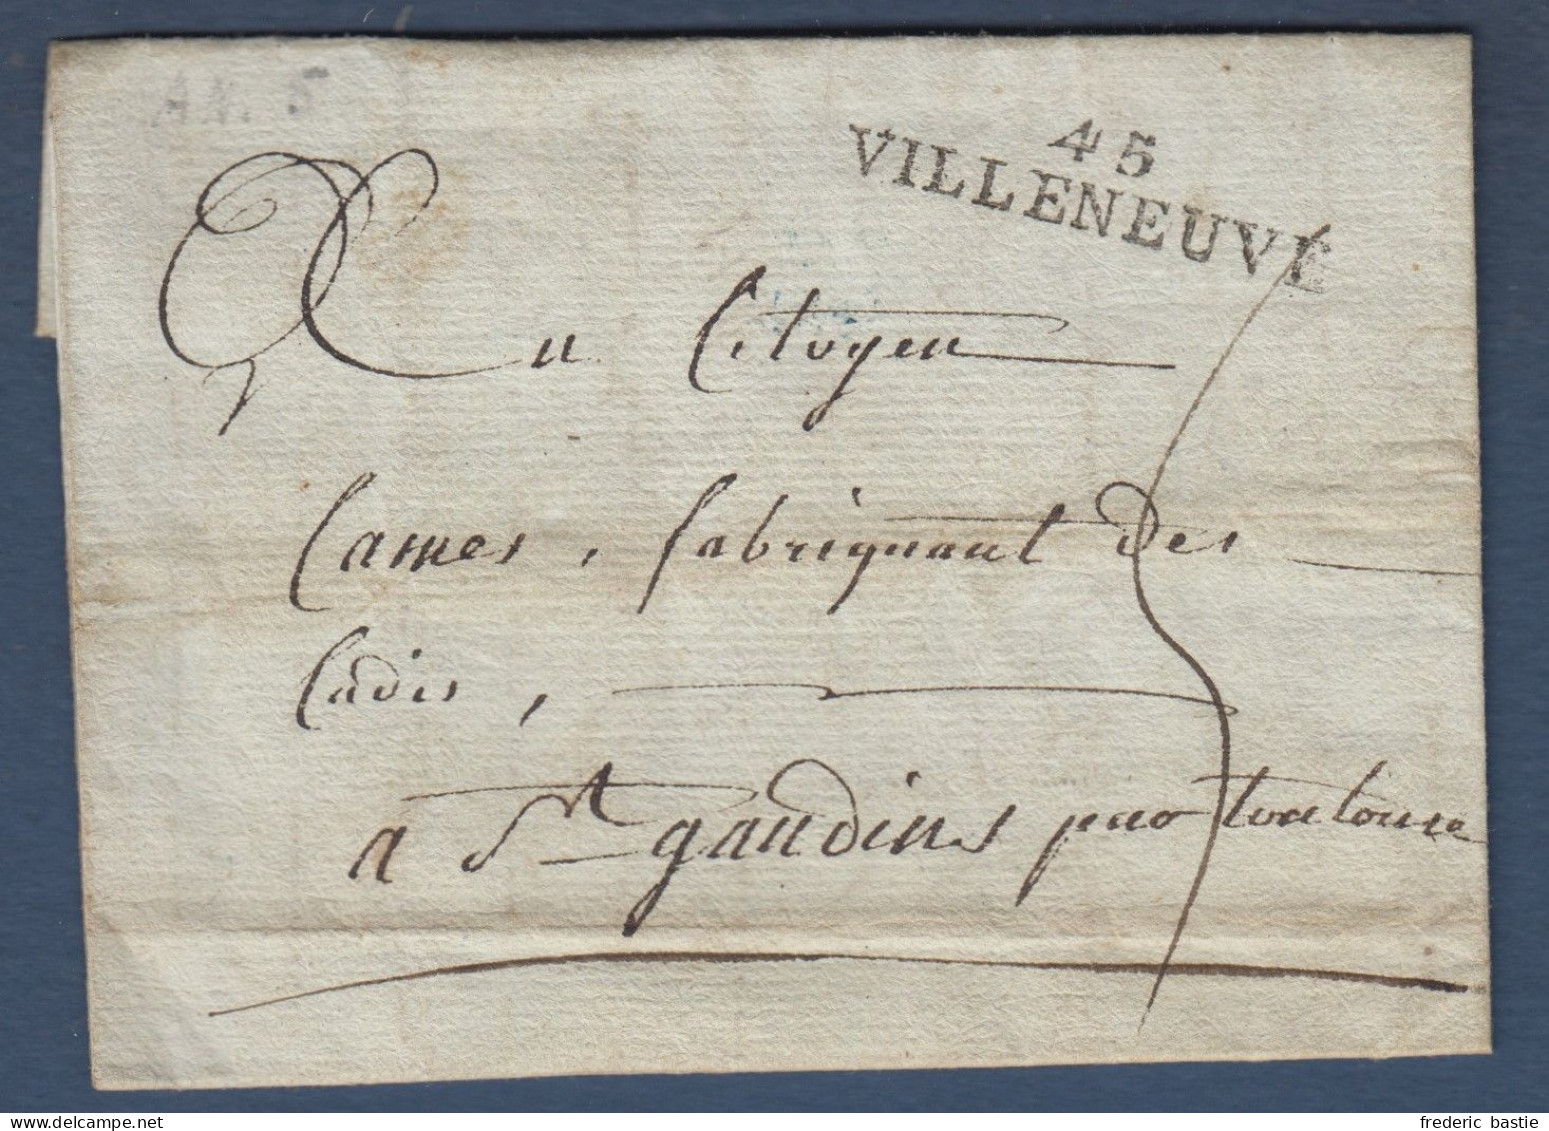 AN. 5
45
VILLENEUVE
Au Citoyen
Cames, fabriquant des
Cadis,
a St gaudins par toulouse
frederic bastie
www.delcampe.net